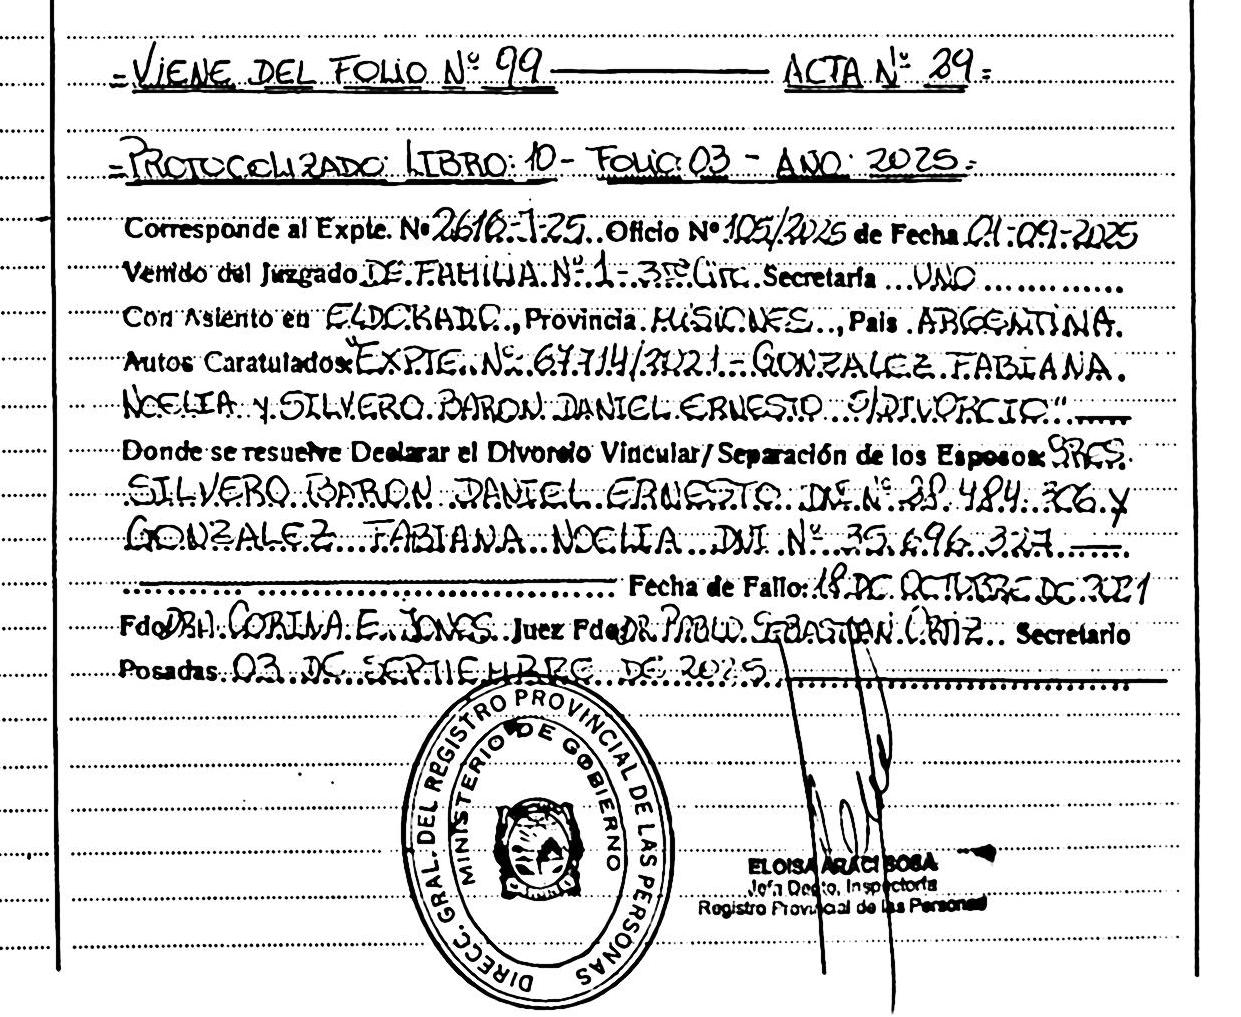 =VIENE DEL FOLIO Nº 99 ——— ACTA Nº 29=
=PROTOCOLIZADO: LIBRO: 10- FOLIO: 03 - AÑO: 2025=
Corresponde al Expte. Nº 2616-J-25. Oficio Nº 105/2025 de Fecha 01-09-2025
Venido del Juzgado DE FAMILIA Nº 1- 3ra Circ. Secretaría ...UNO............
Con Asiento en ELDORADO, Provincia MISIONES.., País ARGENTINA.
Autos Caratulados: "EXPTE. Nº 67714/2021- GONZALEZ FABIANA
NOELIA y SILVERO BARON DANIEL ERNESTO S/DIVORCIO" ——
Donde se resuelve Declarar el Divorcio Vincular/Separación de los Esposos: SRES.
SILVERO BARON DANIEL ERNESTO DNI Nº 38.484.306 y
GONZALEZ FABIANA NOELIA DNI Nº 35.696.327 ——
Fecha de Fallo: 18 DE OCTUBRE DE 2021
Fdo DRA. CORINA E. JONES Juez Fdo DR PABLO SEBASTIAN ORTIZ.. Secretario
Posadas 03 DE SEPTIEMBRE DE 2025
DIRECC. GRAL. DEL REGISTRO PROVINCIAL DE LAS PERSONAS
MINISTERIO DE GOBIERNO
ELOISA ARACI SOSA
Jefa Depto. Inspectoría
Registro Provincial de las Personas